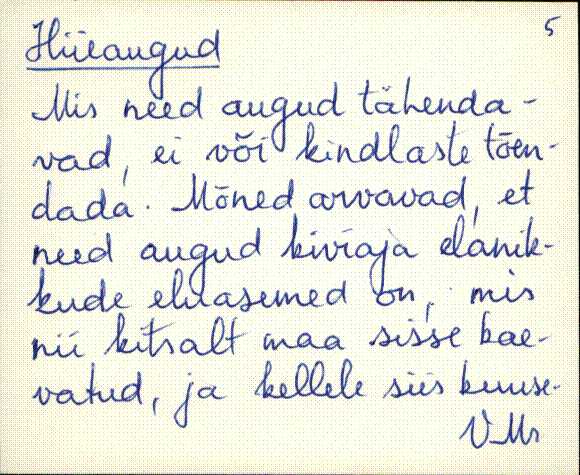 5
Hiieaugud
Mis need augud tähenda-
vad, ei või kindlaste tõen-
dada. Mõned arvavad, et
need augud kiviaja elanik-
kude eluasemed on, mis
nii kitsalt maa sisse kae-
vatud, ja kellele siis kuuse-
VMr